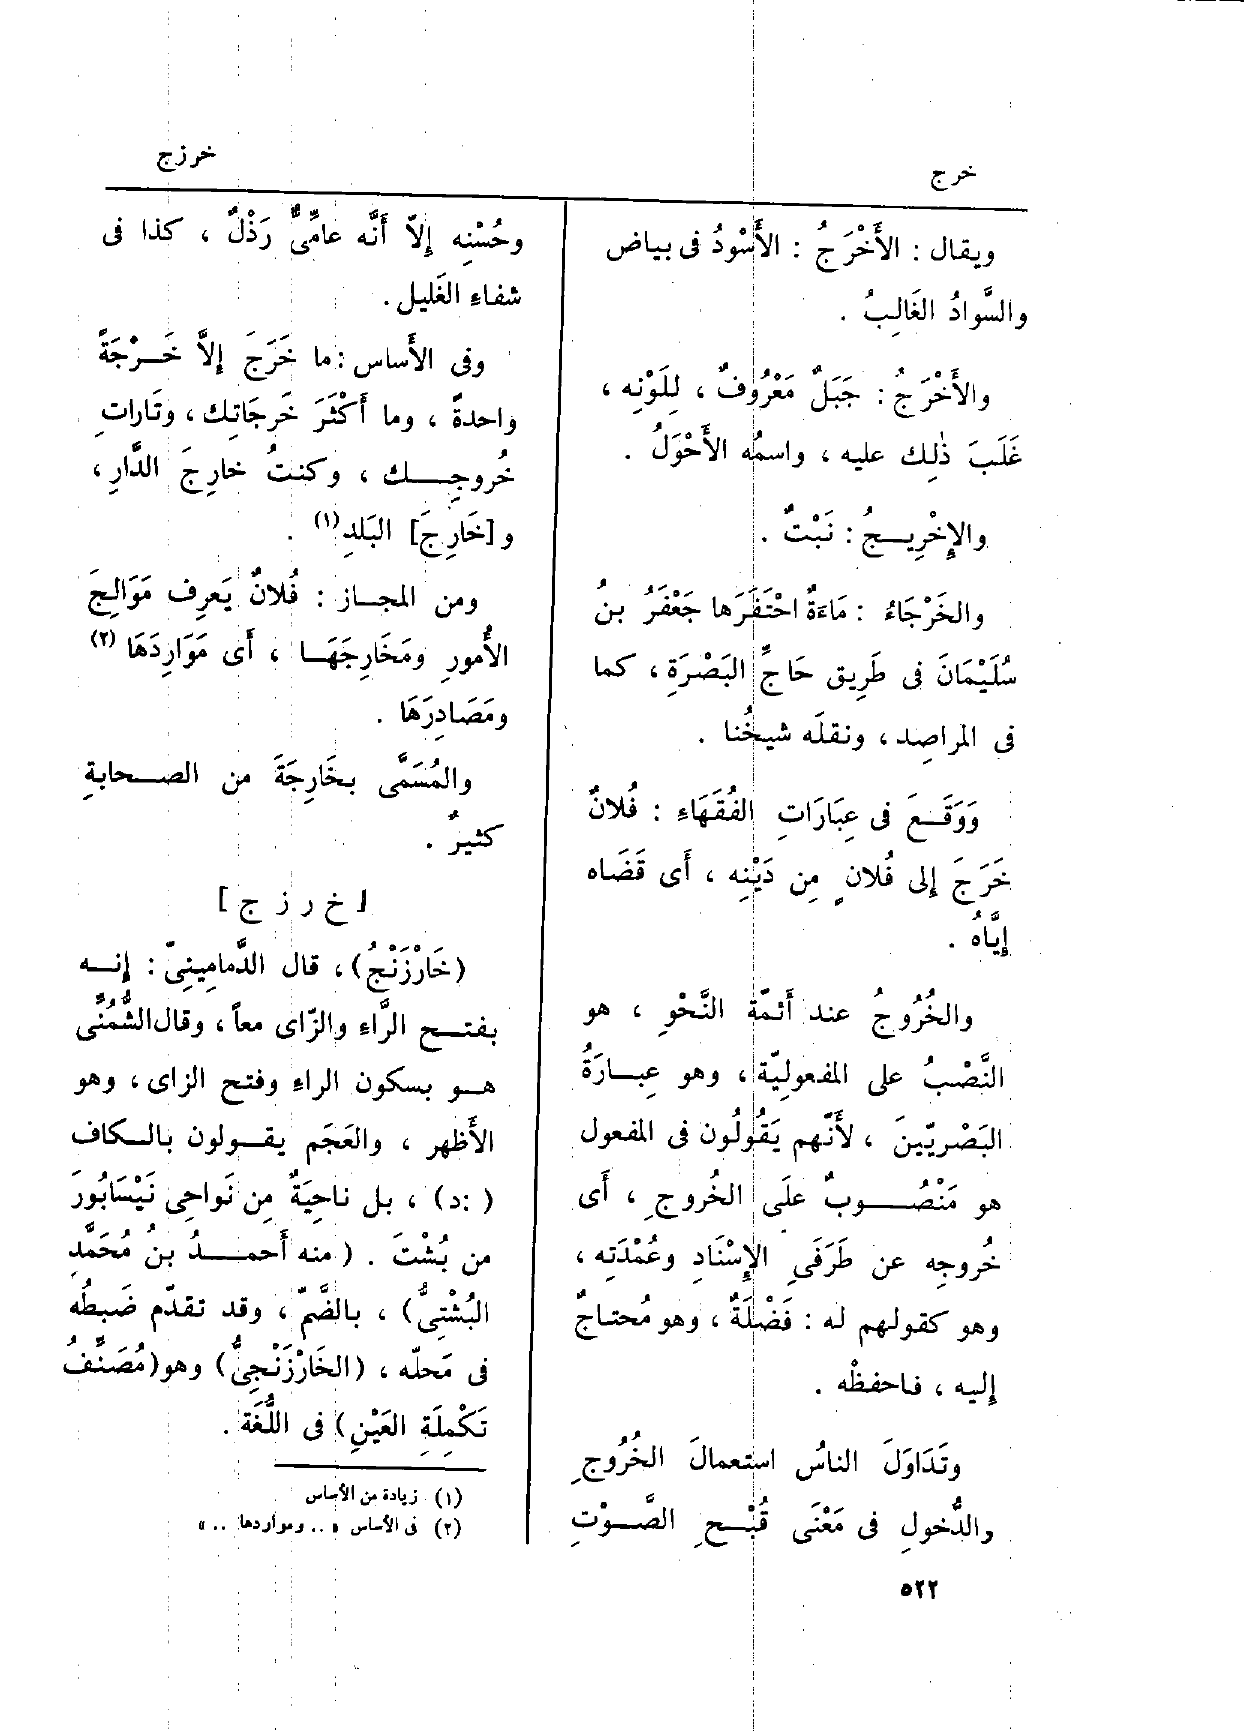 خرج
خرزج
ويقال : الأَخْرَجُ : الأَسْودُ فى بياض
والسَّوادُ الغَالِبُ .
والأَخْرَجُ : جَبَلٌ مَعْرُوفٌ ، لِلَوْنِه ،
غَلَبَ ذٰلِك عليه ، واسمُه الأَحْوَلُ .
والإِخْرِيجُ : نَبْتٌ .
والخَرْجَاءُ : مَاءَةٌ احْتَفَرَها جَعْفَرُ بنُ
سُلَيْمَانَ فى طَرِيق حَاجِّ البَصْرَةِ ، كما
فى المراصِد ، ونقلَه شيخُنا .
وَوَقَعَ فى عِبَارَاتِ الفُقَهَاءِ : فُلانٌ
خَرَجَ إلى فُلانٍ مِن دَيْنِه ، أَى قَضَاه
إيَّاهُ .
والخُرُوجُ عند أَئمّة النَّحْوِ ، هو
النَّصْبُ على المفعوليّة ، وهو عِبارَةُ
البَصْرِيّينَ ، لأَنّهم يَقُولُون فى المفعول
هو مَنْصُوبٌ علَى الخُروجِ ، أَى
خُروجِه عن طَرَفَىِ الإِسْنَادِ وعُمْدَتِه ،
وهو كقولهم له : فَضْلَةٌ ، وهو مُحتاجٌ
إليه ، فاحفظْه .
وتَدَاوَلَ الناسُ استعمالَ الخُرُوجِ
والدُّخولِ فى مَعْنَى قُبْحِ الصَّوْتِ
وحُسْنِه إلاّ أَنَّه عامِّىٌّ رَذْلٌ ، كذا فى
شفاءِ الغَليل .
وفى الأَساس : ما خَرَجَ إلاَّ خَرْجَةً
واحدةً ، وما أَكْثَرَ خَرجَاتِك ، وتَاراتِ
خُروجِك ، وكنتُ خارِجَ الدَّارِ ،
و [خَارِجَ] البَلدِ (١) .
ومن المجاز : فُلانٌ يَعرِف مَوَالِجَ
الأُمورِ ومَخَارِجَهَا ، أَى مَوَارِدَهَا (٢)
ومَصَادِرَهَا .
والمُسَمَّى بخَارِجَةَ من الصحابةِ
كثيرٌ .
[ خ ر ز ج ]
(خَارْزَنْجُ) ، قال الدَّمامِينِىّ : إنه
بفتح الرَّاءِ والزّاى معاً ، وقال الشُّمُنِّى
هو بسكون الراءِ وفتح الزاى ، وهو
الأَظهر ، والعَجَم يقولون بالكاف
( :د) ، بل ناحِيَةٌ مِن نَواحِى نَيْسَابُورَ
من بُشْتَ . ( منه أَحمدُ بنُ مُحَمَّدِ
البُشْتِىُّ) ، بالضَّمّ ، وقد تقدّم ضَبطُه
فى مَحلّه ، (الخَارْزَنْجِىُّ) وهو(مُصَنِّفُ
تَكْمِلَةِ العَيْنِ) فى اللُّغَة .
(١) زيادة من الأساس
(٢) فى الأساس « .. ومواردها .. »
٥٢٢